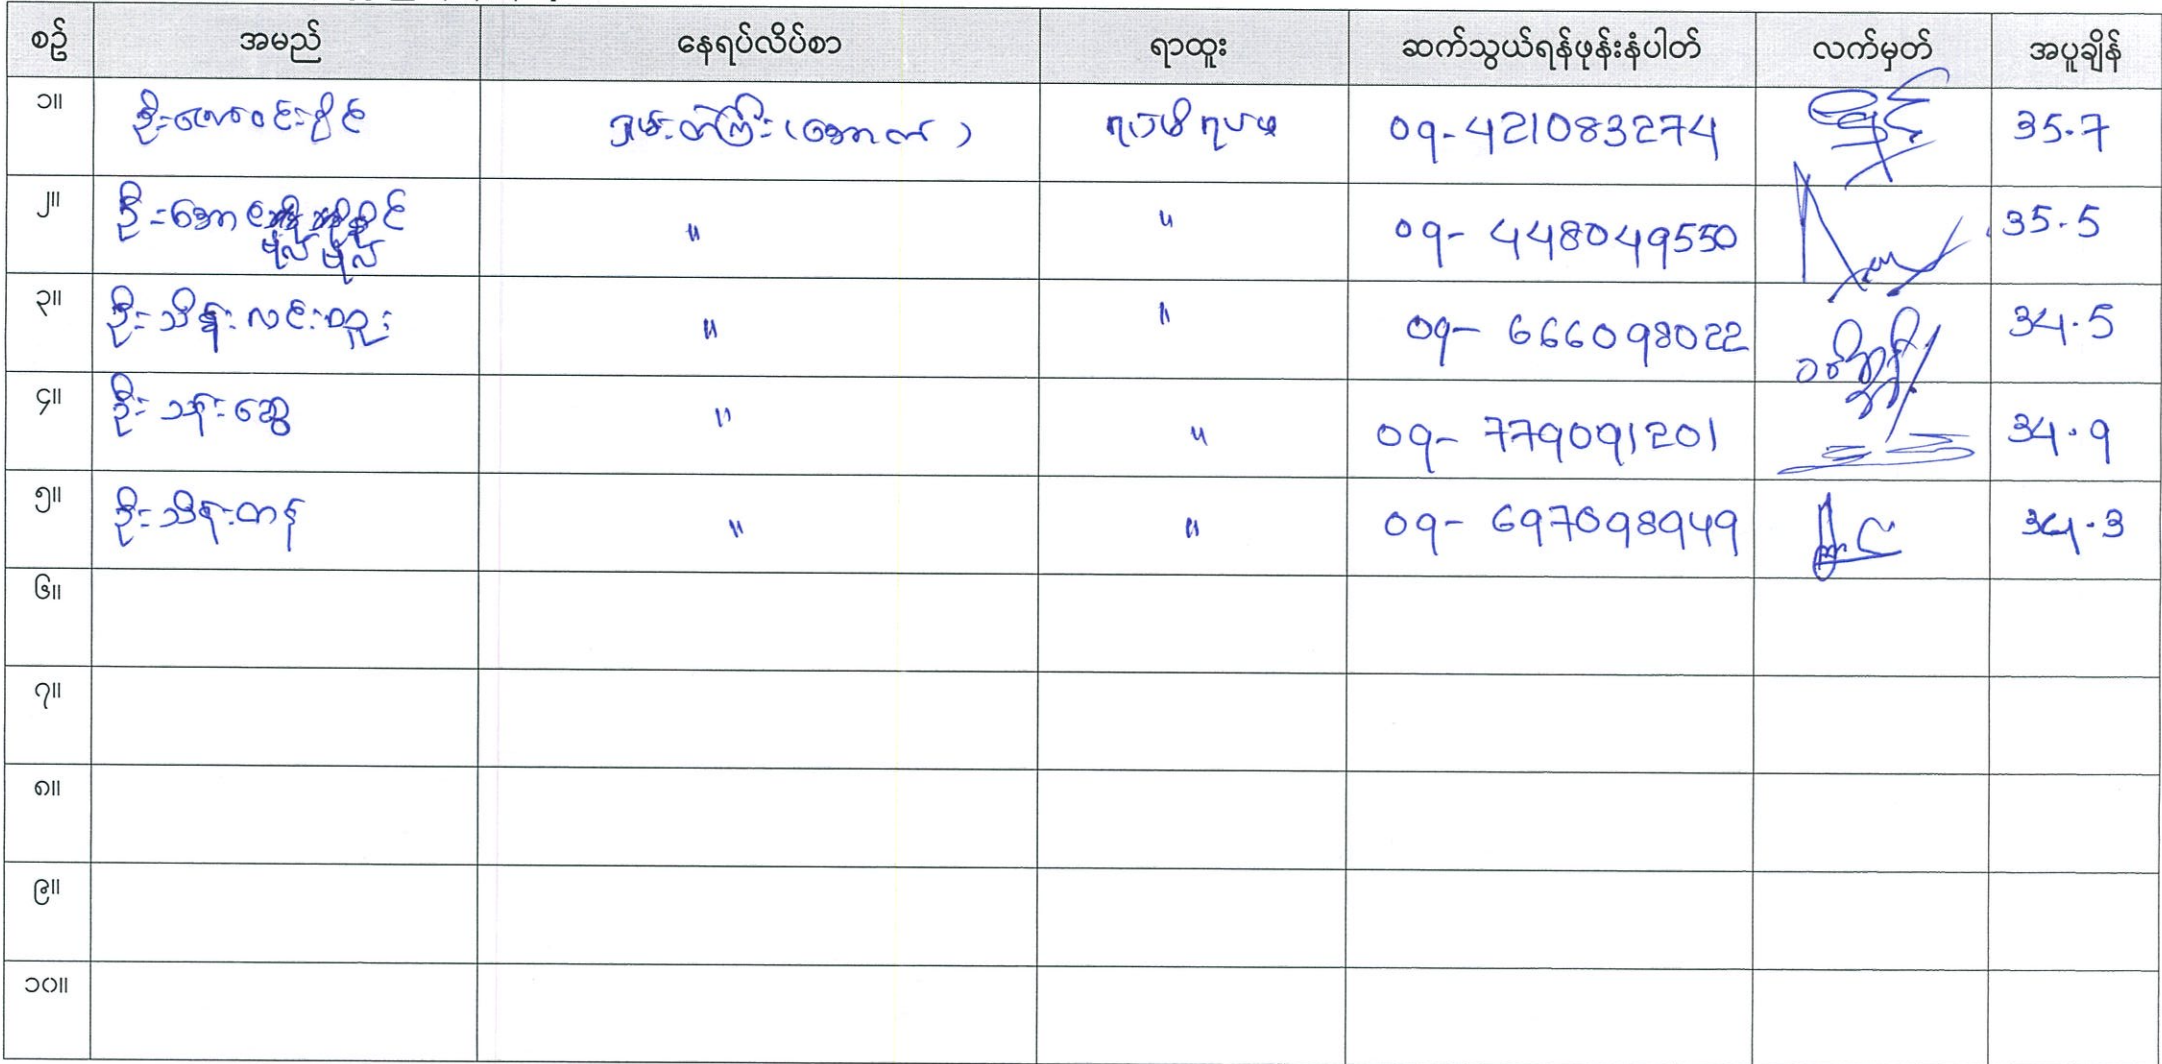 စဉ် အမည် နေရပ်လိပ်စာ ရာထူး ဆက်သွယ်ရန်ဖုန်းနံပါတ် လက်မှတ် အပူချိန်
၁။ ဦးဇော်ဝင်းနိုင် (အောက်) 09-421083274 35.7
၂။ ဦးအောင် မျိုး မျိုး " " 09-448049550 35.5
၃။ ဦးသိန်းလင်းထူး " " 09-666098022 34.5
၄။ ဦးသန်းဆွေ " " 09-779091201 34.9
၅။ ဦးသိန်းဟန် " " 09-697098949 34.3
၆။
၇။
၈။
၉။
၁၀။